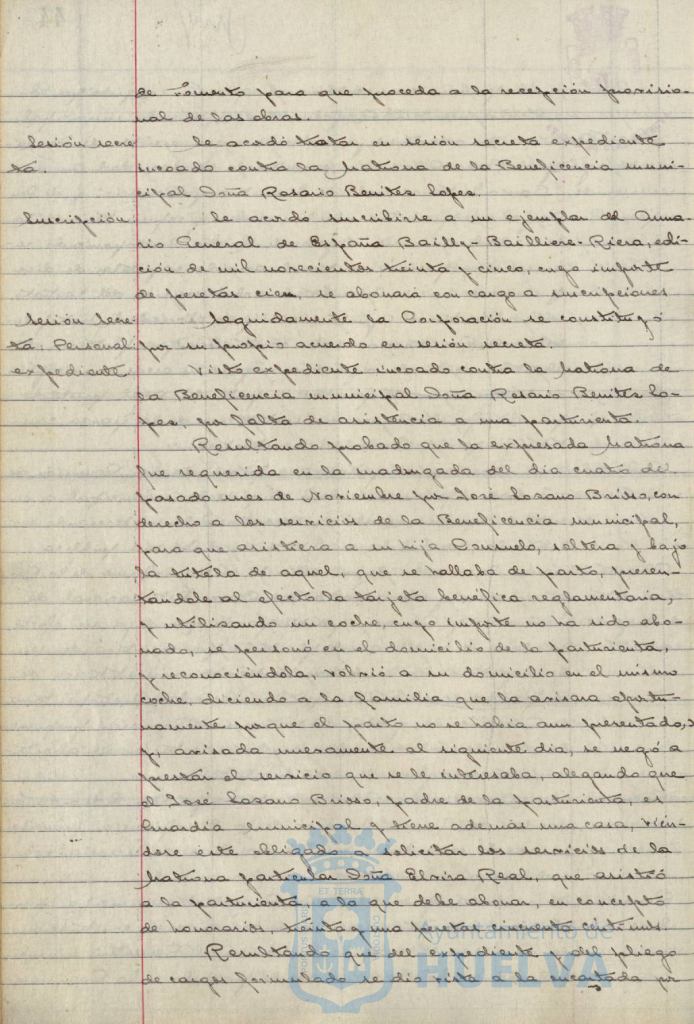 de Fomento para que proceda a la recepción provisio-
nal de las obras.
Sesión secre-
ta.
Se acordó tratar en sesión secreta expediente
incoado contra la Matrona de la Beneficencia muni-
cipal Doña Rosario Benítez López.
Suscripción.
Se acordó suscribirse a un ejemplar del Anua-
rio General de España Bailly-Bailliere-Riera, edi-
ción de mil novecientos treinta y cinco, cuyo importe
de pesetas cien, se abonará con cargo a suscripciones
Sesión secre-
ta. Personal:
expediente
Seguidamente la Corporación se constituyó
por su propio acuerdo en sesión secreta.
Visto expediente incoado contra la Matrona de
la Beneficencia municipal Doña Rosario Benítez Ló-
pez, por falta de asistencia a una parturienta.
Resultando probado que la expresada Matrona
fue requerida en la madrugada del día cuatro de
pasado mes de Noviembre por José Lozano Brioso, con
derecho a los servicios de la Beneficencia municipal,
para que asistiera a su hija Consuelo, soltera y bajo
la tutela de aquel, que se hallaba de parto, presen-
tándole al efecto la tarjeta benéfica reglamentaria,
y utilizando un coche, cuyo importe no ha sido abo-
nado, se personó en el domicilio de la parturienta,
y reconociéndola, volvió a su domicilio en el mismo
coche, diciendo a la familia que la avisara oportu-
namente porque el parto no se había aun presentado,
y, avisada nuevamente al siguiente día, se negó a
prestar el servicio que se le interesaba, alegando que
el José Lozano Brioso, padre de la parturienta, es
Guardia municipal y tiene además una casa, vién-
dose éste obligado a solicitar los servicios de la
Matrona particular Doña Elvira Real, que asistió
a la parturienta, a la que debe abonar, en concepto
de honorarios, treinta y una pesetas cincuenta céntimos.
Resultando que del expediente y del pliego
de cargos formulado se dió vista a la encartada por
Ayuntamiento de
HUELVA